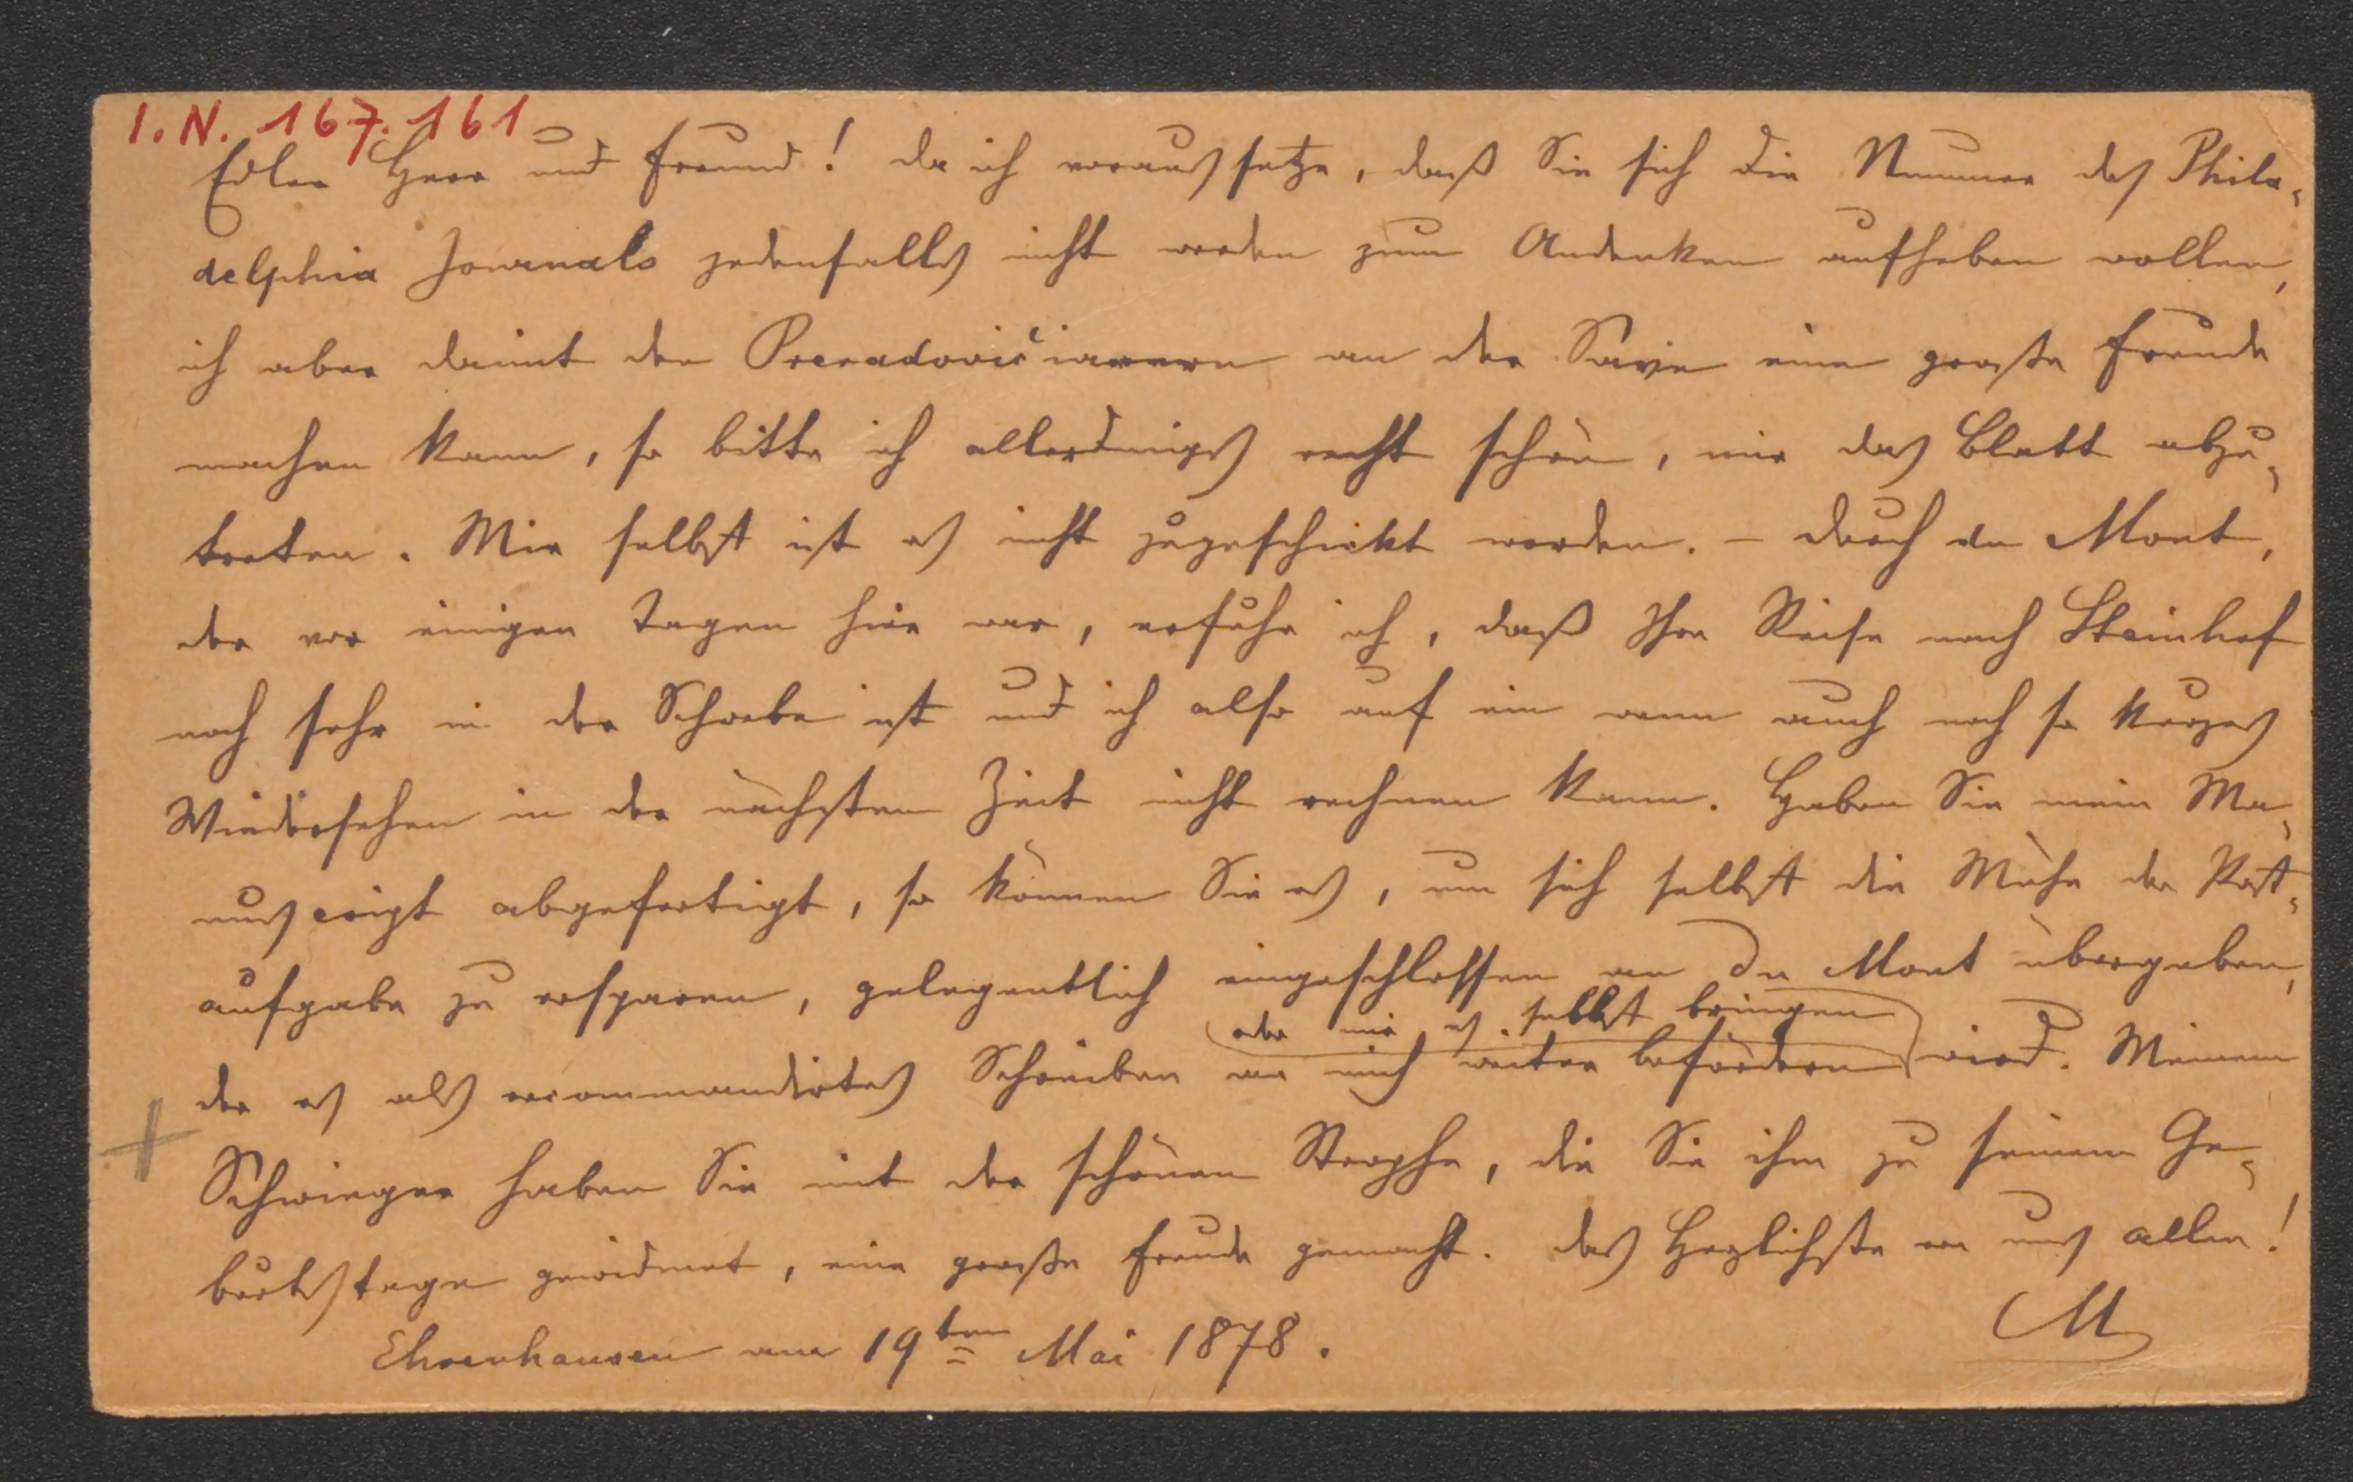 I. N. 167.161
Edler Herr und Freund! Da ich voraussetze, daß Sie sich die Nummer des Phila-
delphia Journals jedenfalls nicht werden zum Andenken aufheben wollen,
ich aber damit den Preradovićianern an der Save eine große Freude
machen kann, so bitte ich allerdings recht schön, mir das Blatt abzu-
treten. Mir selbst ist es nicht zugeschickt worden. – Durch du Mont,
der vor einigen Tagen hier war, erfuhr ich, daß Ihre Reise nach Steinhof
noch sehr in der Schwebe ist und ich also auf ein wenn auch noch so kurzes
Wiedersehen in der nächsten Zeit nicht rechnen kann. Haben Sie mein Ma-
nuscript abgefertigt, so können Sie es, um sich selbst die Mühe der Post-
aufgabe zu ersparen, gelegentlich eingeschlossen an Du Mont übergeben,
oder mir es selbst bringen
der es als recommandirtes Schreiben an mich weiter befördern wird. Meinem
Schwieger haben Sie mit der schönen Strophe, die Sie ihm zu seinem Ge-
burtstage gewidmet, eine große Freude gemacht. Das Herzlichste von uns allen!
M
Ehrenhausen am 19ten Mai 1878.